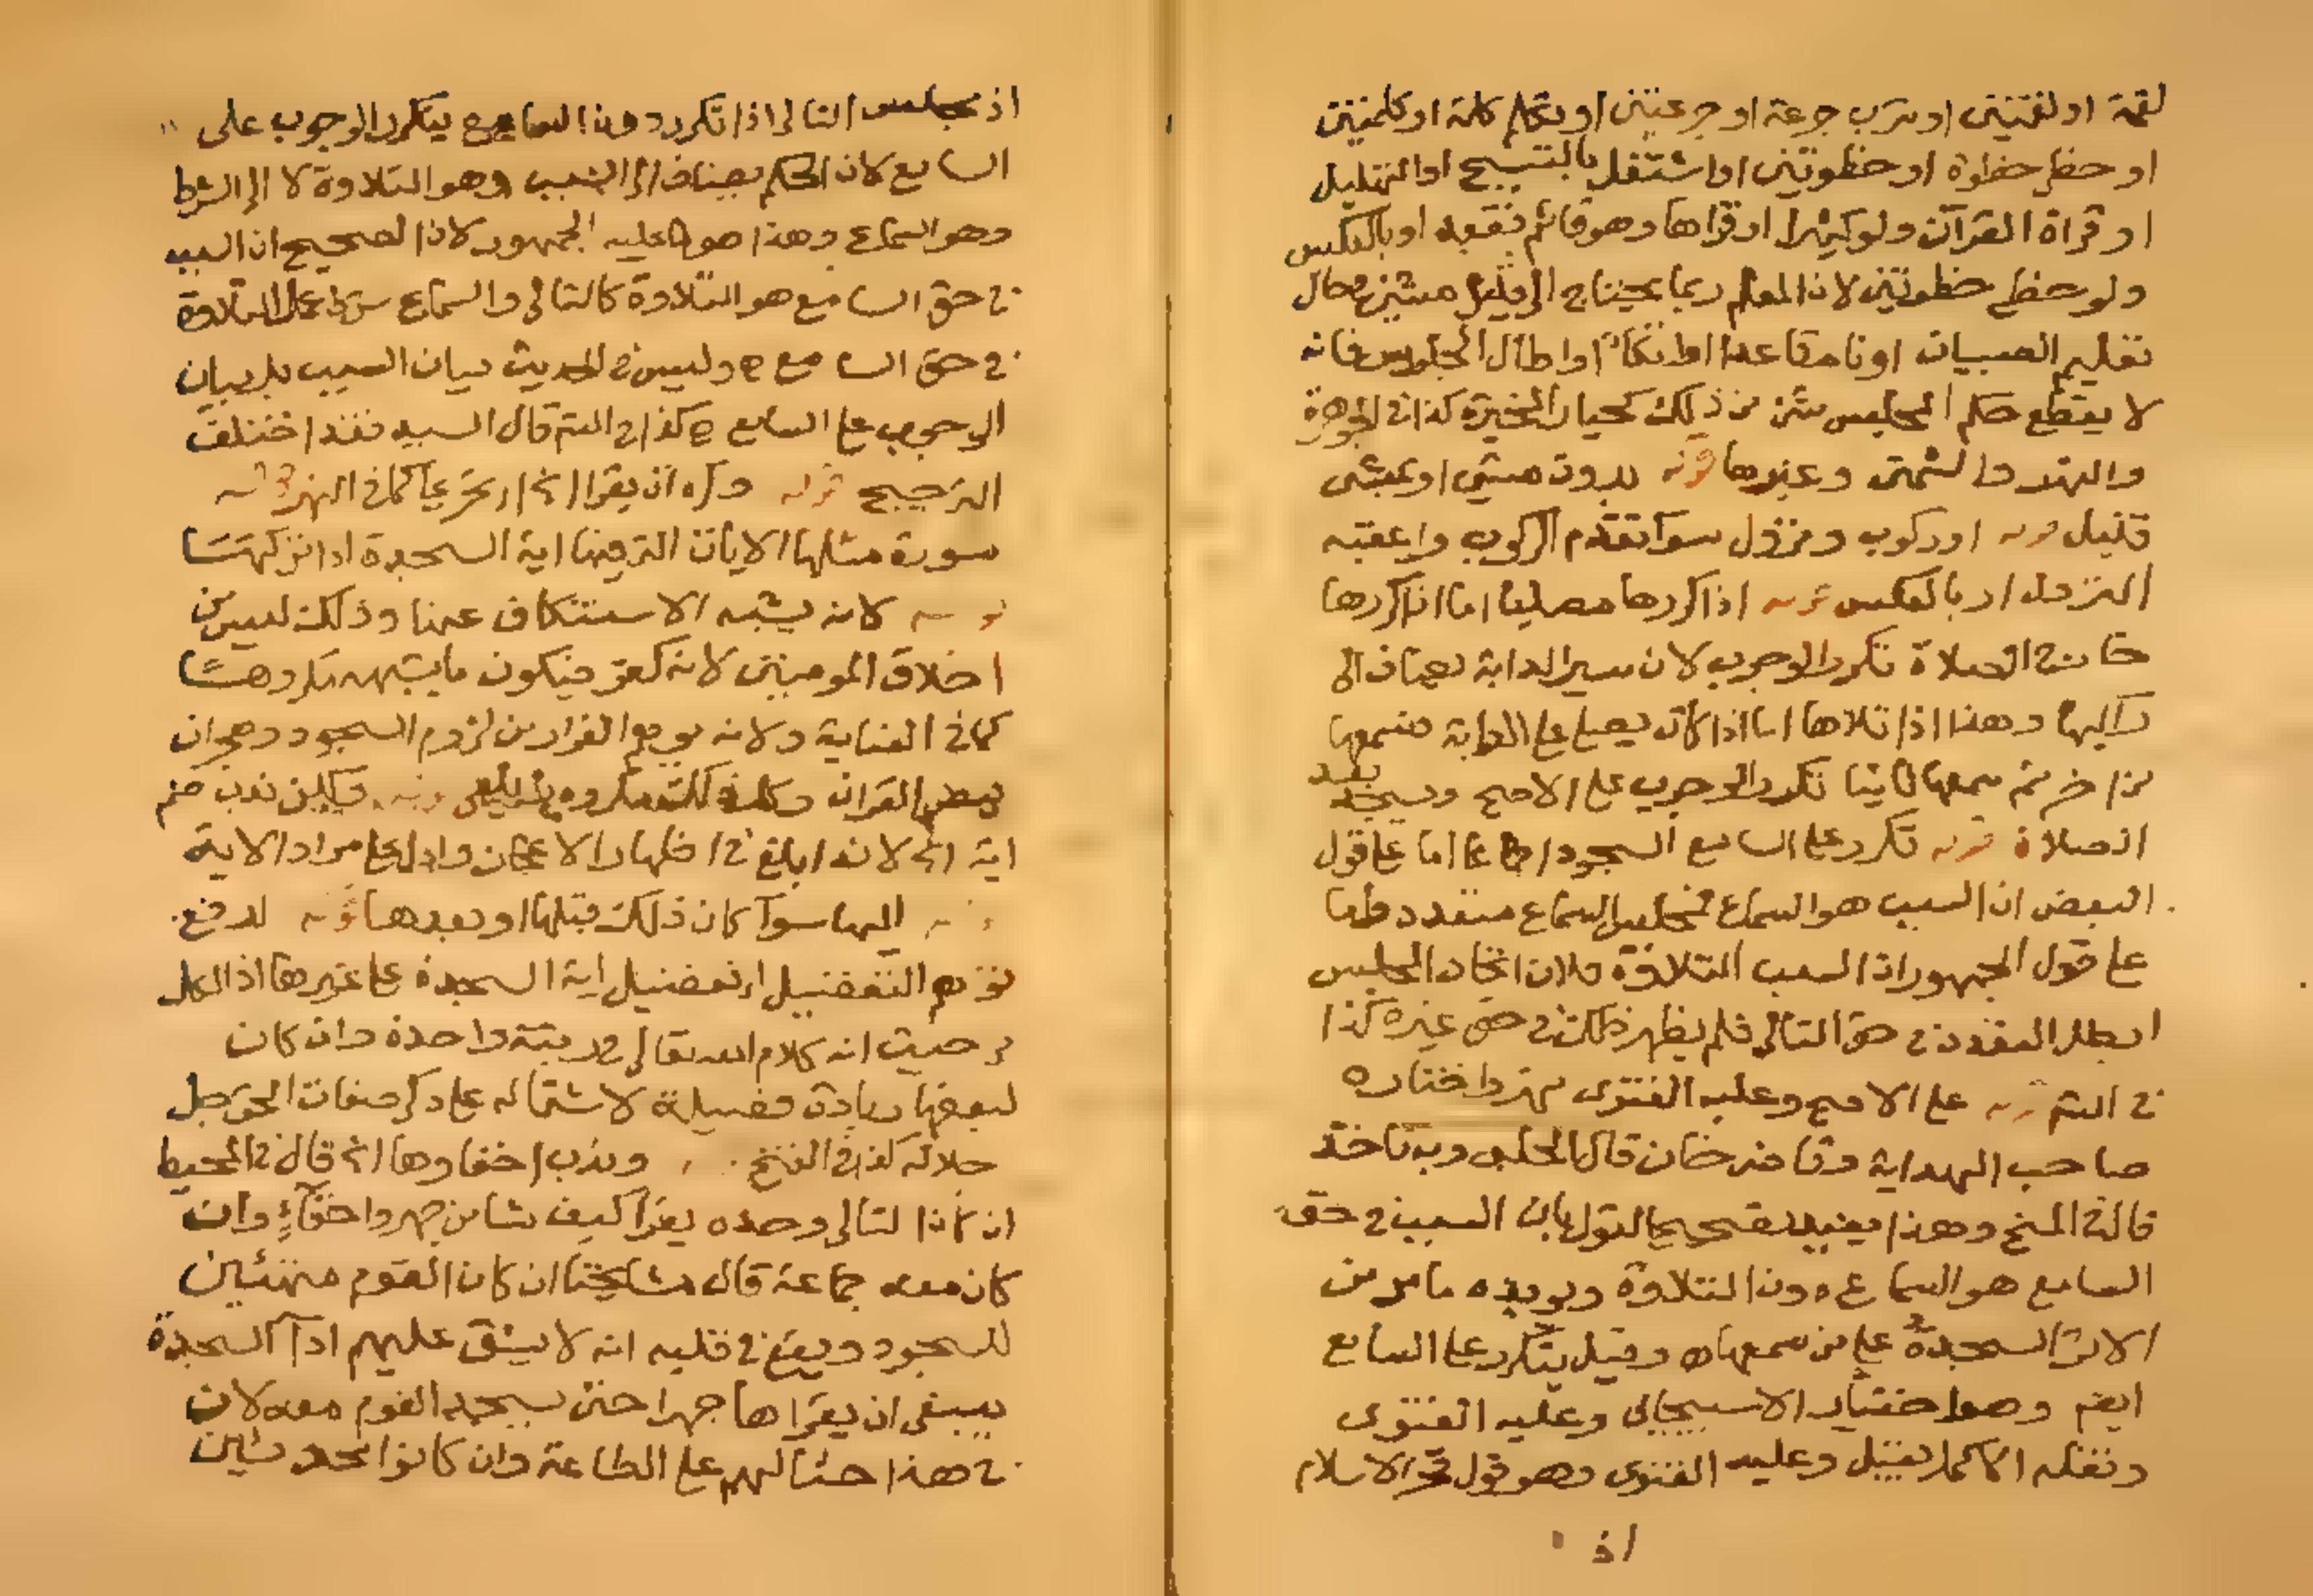 لقمة او لقمتين او شرب جرعة او جرعتين او تكلم كلمة او كلمتين
او خطى خطوة او خطوتين او اشتغل بالتسبيح او التهليل
او قراة القرآن ولو كثيرا او قراها وهو قائم فقعد او بالعكس
ولو خطى خطوتين لان المعلم ربما يحتاج الى قليل مشى حال
تعليم الصبيان او نام قاعدا او اتكأ او اطال الجلوس فانه
لا يقطع حكم المجلس شئ من ذلك كخيار المخيرة كذا فى الجوهرة
والنهر والشمنى وغيرها قوله بدون مشى او بمشى
قليل قوله او ركوب ونزول سوآ تقدم الركوب واعقبه
النزول او بالعكس قوله اذا كررها مصليا اما اذا كررها
خارج الصلاة تكرر الوجوب لان سير الدابة يضاف الى
راكبها وهذا اذا تلاها اما اذا كان يصلى على الدابة فسمعها
من اخر ثم سمعها ثانيا تكرر الوجوب على الاصح ويسجد بعد
الصلاة قوله تكرر على السامع السجود اجماعا اما على قول
البعض ان السبب هو السماع فمجلس السماع متعدد واما
على قول الجمهور ان السبب التلاوة فلان اتحاد المجلس
ابطل التعدد فى حق التالى فلم يظهر ذلك فى حق غيره كذا
فى الشم قوله على الاصح وعليه الفتوى نهر واختاره
صاحب الهداية وقاضى خان قال الحلبى وبه ناخذ
قال فى المنح وهذا يفيد تصحيح القول بان السبب فى حق
السامع هو السماع دون التلاوة ويويده ما مر من
الاثر السجدة على من سمعها وقيل يتكرر على السامع
ايضم وهو اختيار الاسبيجابى وعليه الفتوى
ونقله الاكمل بقيل وعليه الفتوى وهو قول فخر الاسلام
اذ
اذ مجلس التالى اذا تكرر دون السامع يتكرر الوجوب على
السامع لان الحكم يضاف الى السبب وهو التلاوة لا الى الشرط
وهو السماع وهذا هو ما عليه الجمهور لان الصحيح ان السبب
فى حق السامع هو التلاوة كالتالى والسماع شرط عمل التلاوة
فى حق السامع وليس فى الحديث بيان السبب بل بيان
الوجوب على السامع كذا فى الشم قال السيد فقد اختلف
الترجيح قوله وكره ان يقرا الخ اى تحريما كما فى النهر قوله
سورة مثلها الايات التى فيها اية السجدة اذا تركهتسا
قوله لانه يشبه الاستنكاف عنها وذلك ليس من
اخلاق المومنين لانه كفر فيكون ما يشبهه مكروهسا
كما فى العناية ولانه يوهم الفرار من لزوم السجود وهجران
بعض القران وكل ذلك مكروه زيلعى قوله ولكن ندب ضم
اية الخ لانه ابلغ فى اظهار الاعجاز وادل على مراد الاية
قوله اليها سوآ كان ذلك قبلها او بعدها قوله لدفع
توهم التفضيل اى تفضيل اية السجدة على غيرها اذ الكل
من حيث انه كلام الله تعالى فى رتبة واحدة وان كان
لبعضها زيادة فضيلة لاشتماله على ذكر صفات الحق جل
جلاله كذا فى الفتح وندب اخفاوها الخ قال فى المحيط
ان كان التالى وحده يقرأ كيف شا من جهر واخفآء وان
كان معه جماعة قال مشايخنا ان كان القوم متهيئين
للسجود ويقع فى قلبه انه لا يشق عليهم ادآ السجدة
ينبغى ان يقراها جهرا حتى يسجد القوم معه لان
فى هذا حثا لهم على الطاعة وان كانوا محدثين